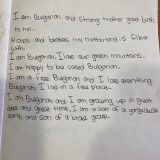 I am Bulgarian and strong mother gave birth
to me.
Riches and beauties my motherland is filled
with.
I am Bulgarian. I love our green mountains.
I am happy to be called Bulgarian.
I am a free Bulgarian and I love everything
Bulgarian. I live in a free place.
I am Bulgarian and I am growing up in great
days and great time. I am a son of a gorgeous
earth and son of a brave group.